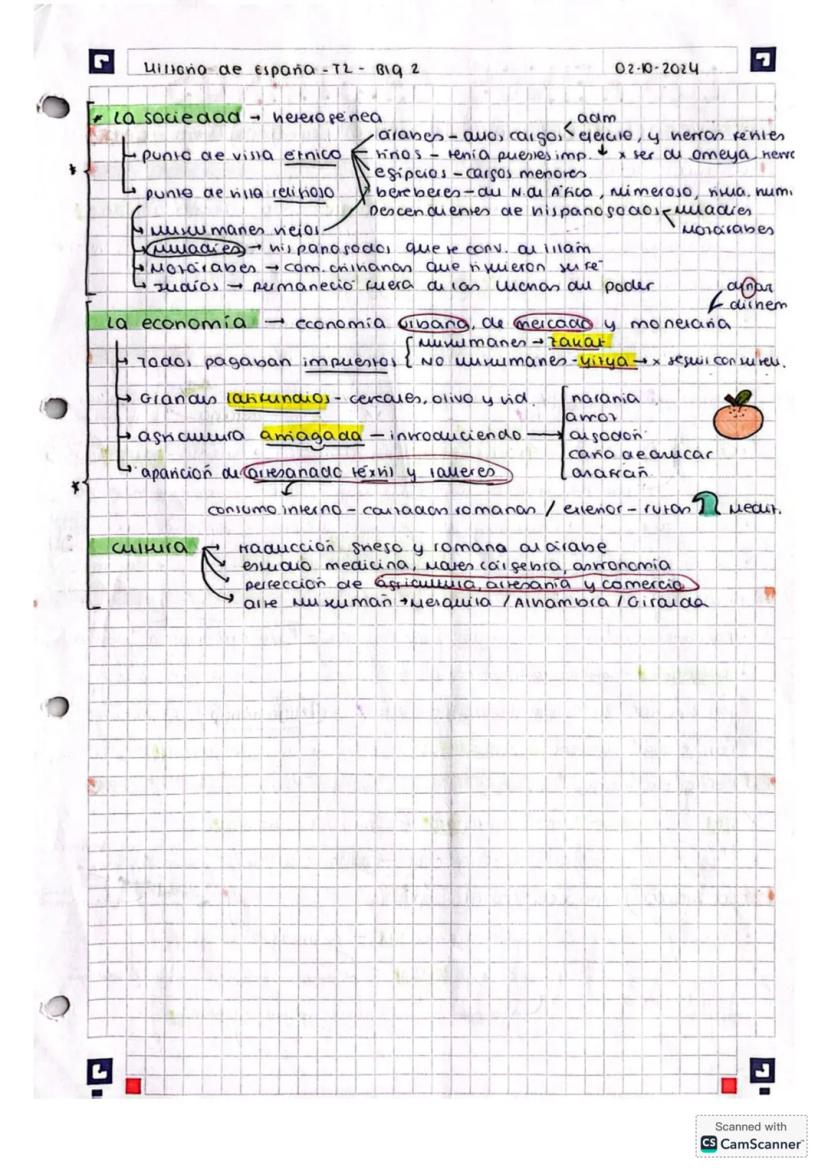 Historia de España - T2 - Blq 2
02-10-2024
* La sociedad → heterogénea
adm
árabes - altos cargos < ejército, y tierras fértiles
punto de vista étnico
sirios - tenía puestos imp. ↓ x ser du omeya,
egipcios - cargos menores
punto de vista religioso
bereberes - du N. du África, numeroso, num.
Descendientes de hispanogodos < Muladíes
Mozárabes
→ Musulmanes viejos
→ Muladíes → hispanogodos que se conv. al islam
→ Mozárabes → com. cristianas que siguieron su fe
→ Judíos → permaneció fuera de las luchas du poder
dinar
dirhem
La economía → economía urbana, de mercado y monetaria
Musulmanes → zakat
→ Todos pagaban impuestos { No musulmanes - yizya → x seguir con su relu.
→ Grandes latifundios - cereales, olivo y vid.
naranja
arroz
→ agricultura arriagada - introduciendo →
algodón
caña de azúcar
→ aparición de artesanado téxtil y talleres
azafrán
consumo interno - calzadas romanas / exterior - rutas Medit.
cultura
→ traducción griego y romana al árabe
→ estudio medicina, mates (álgebra, astronomía
→ perfección de agricultura, artesanía y comercio
→ arte Musulmán → Mezquita / Alhambra / Giralda
Scanned with
CS CamScanner